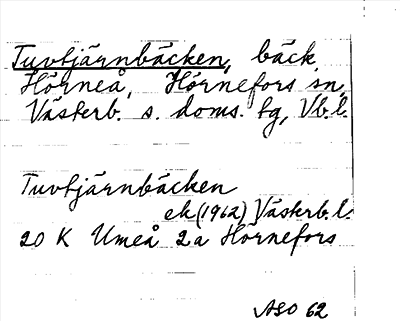 Tuvtjärnbäcken, bäck,
Hörneå, Hörnefors sn,
Västerb. s. doms. tg, Vb.l.
Tuvtjärnbäcken
ek (1962) Västerb.l.
20 K Umeå 2a Hörnefors
ASO 62